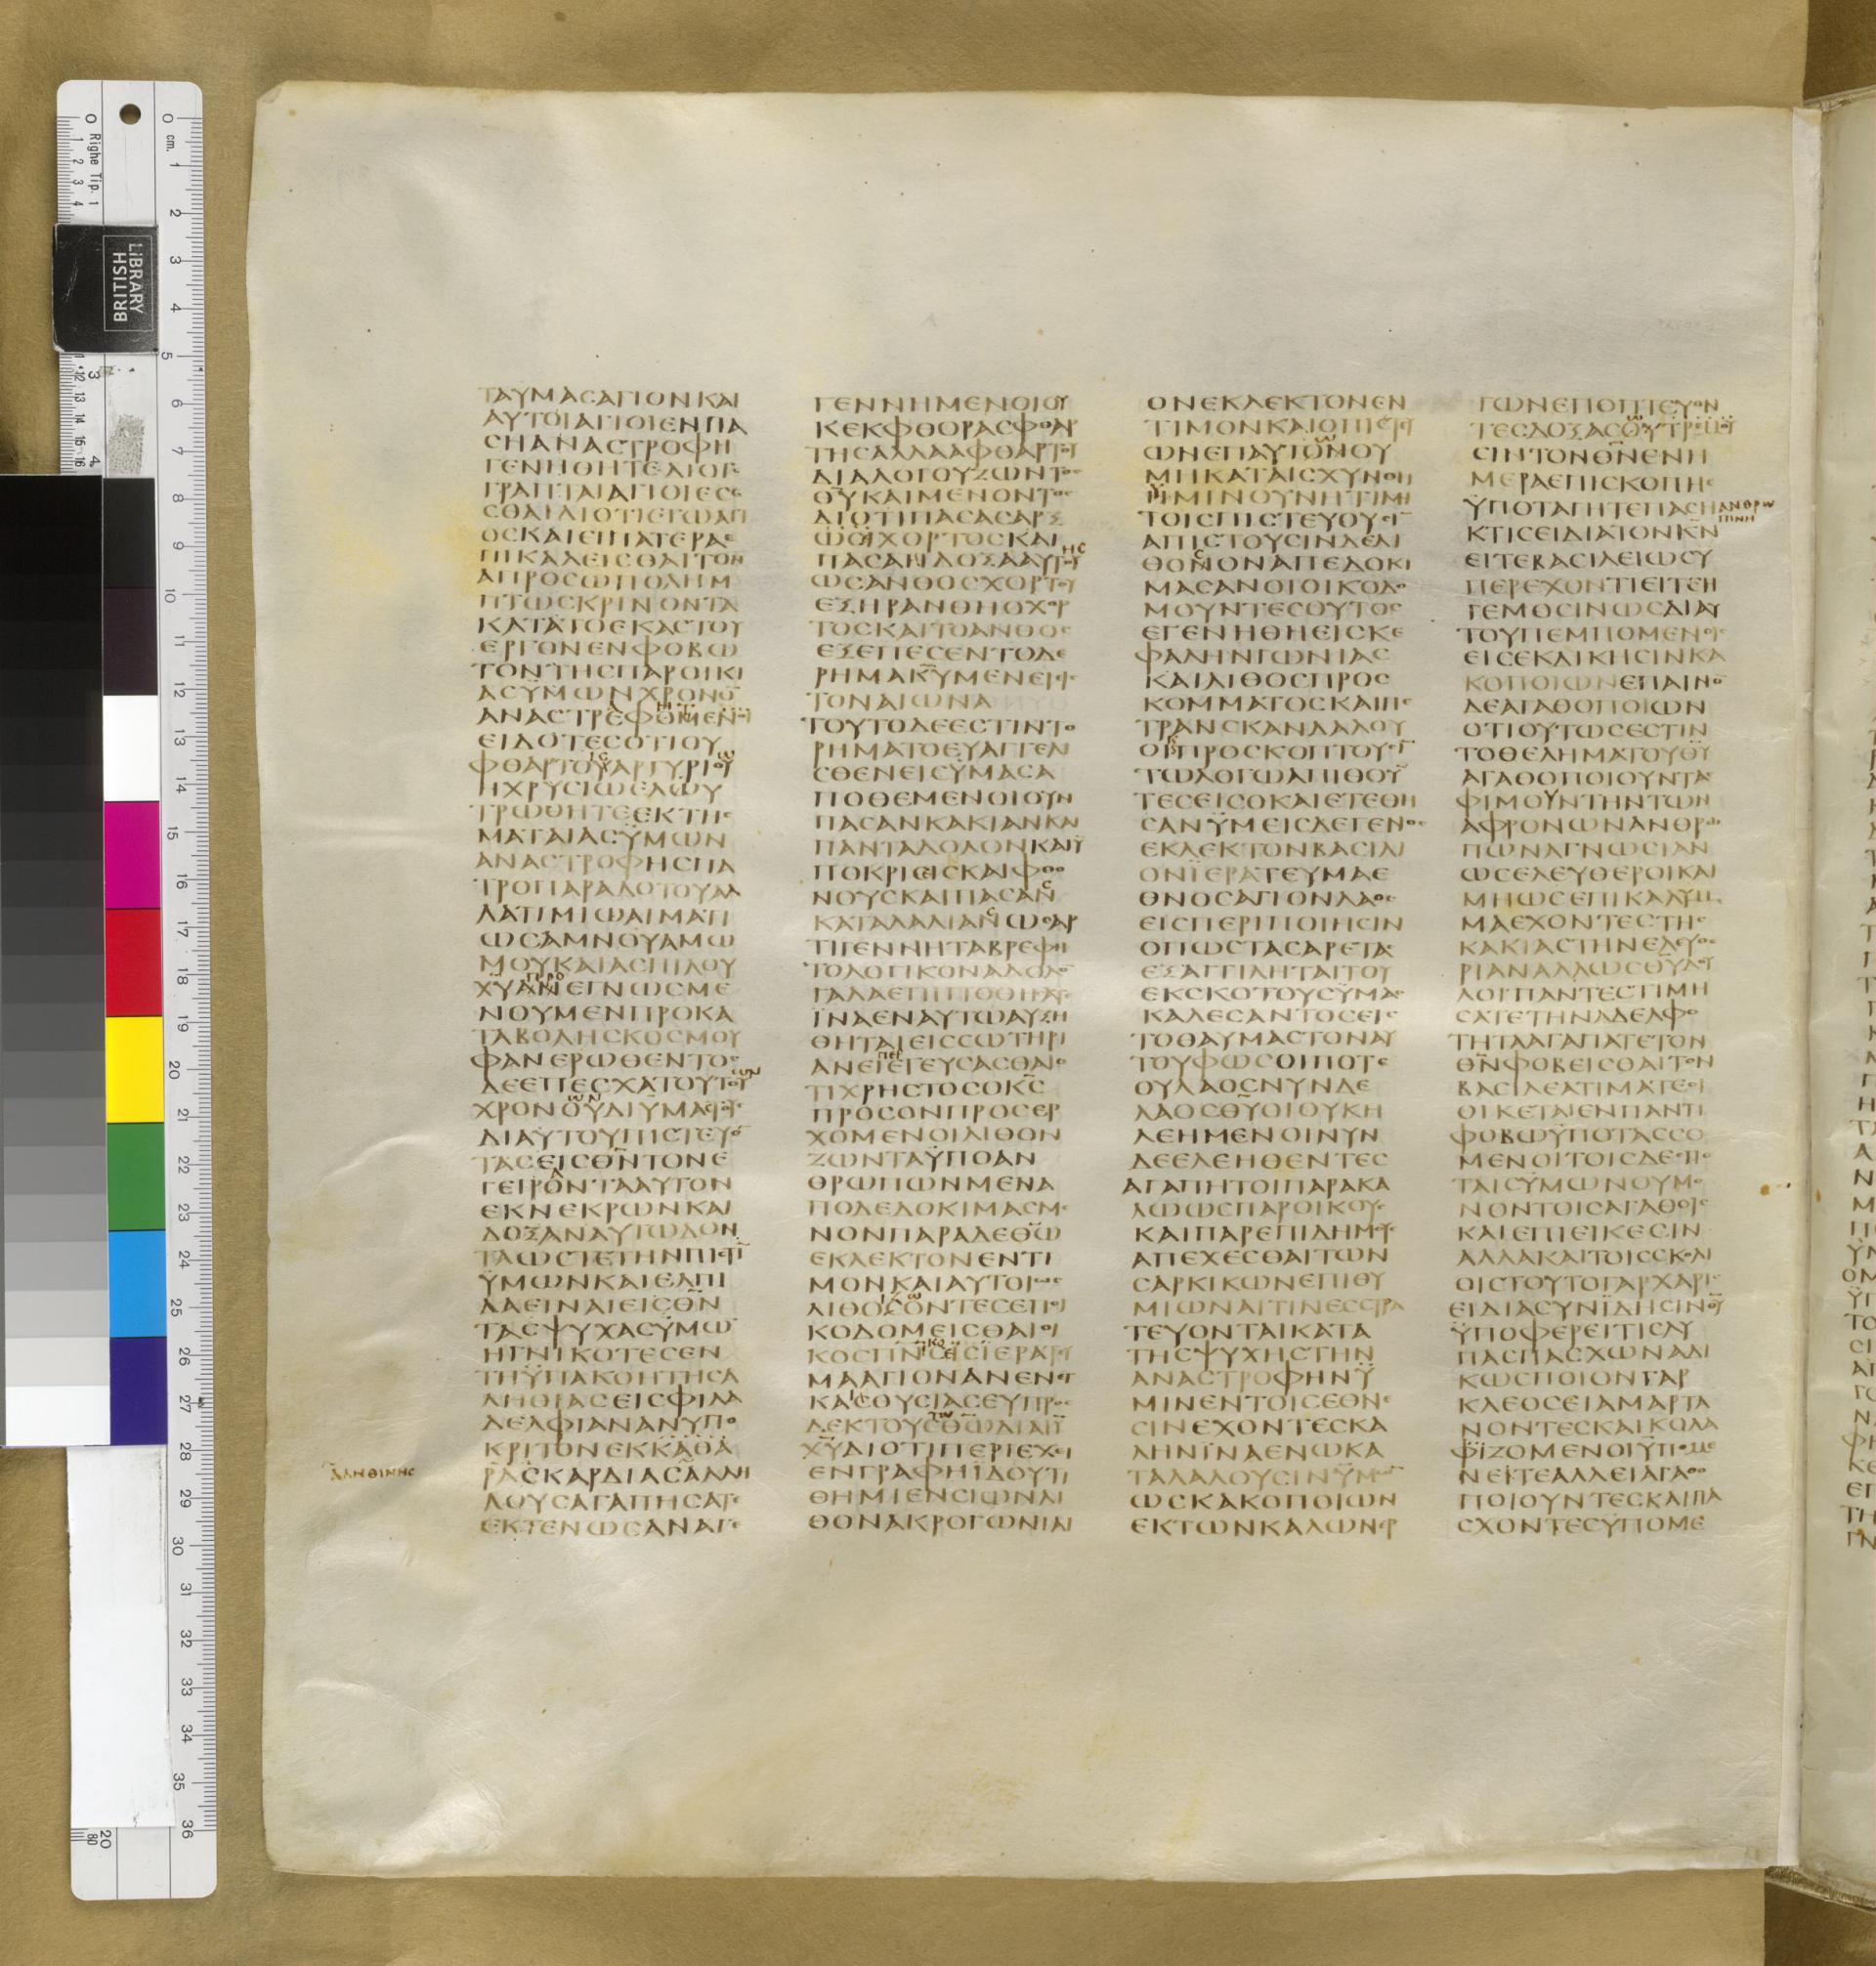 ΤΑΥΜΑϹΑΓΙΟΝΚΑΙ
ΑΥΤΟΙΑΓΙΟΙΕΝΠΑ
ϹΗΑΝΑϹΤΡΟΦΗ
ΓΕΝΗΘΗΤΕΔΙΟΓΕ
ΓΡΑΠΤΑΙΑΓΙΟΙΕϹΕ
ϹΘΑΙΔΙΟΤΙΕΓΩΑΓΙ
ΟϹΚΑΙΕΙΠΑΤΕΡΑΕ
ΠΙΚΑΛΕΙϹΘΑΙΤΟΝ
ΑΠΡΟϹΩΠΟΛΗΜ
ΠΤΩϹΚΡΙΝΟΝΤΑ
ΚΑΤΑΤΟΕΚΑϹΤΟΥ
ΕΡΓΟΝΕΝΦΟΒΩ
ΤΟΝΤΗϹΠΑΡΟΙΚΙ
ΑϹΫΜΩΝΧΡΟΝΟ̅
ΑΝΑϹΤΡΕΦΟΜΕΝΟΙ
ΕΙΔΟΤΕϹΟΤΙΟΥ
ΦΘΑΡΤΟΥΑΡΓΥΡΙΟΥ
ΗΧΡΥϹΙΩΕΛΥ
ΤΡΩΘΗΤΕΕΚΤΗϹ
ΜΑΤΑΙΑϹΫΜΩΝ
ΑΝΑϹΤΡΟΦΗϹΠΑ
ΤΡΟΠΑΡΑΔΟΤΟΥΑΛ
ΛΑΤΙΜΙΩΑΙΜΑΤΙ
ΩϹΑΜΝΟΥΑΜΩ
ΜΟΥΚΑΙΑϹΠΙΛΟΥ
ΧΥΑΝΕΓΝΩϹΜΕ
ΝΟΥΜΕΝΠΡΟΚΑ
ΤΑΒΟΛΗϹΚΟϹΜΟΥ
ΦΑΝΕΡΩΘΕΝΤΟϹ
ΔΕΕΠΕϹΧΑΤΟΥΤΟΥ
ΧΡΟΝΟΥΔΙΥΜΑϹΤΟΥϹ
ΔΙΑΥΤΟΥΠΙϹΤΕΥΟ̅
ΤΑϹΕΙϹΘΝ̅ΤΟΝΕ
ΓΕΙΡΟΝΤΑΑΥΤΟΝ
ΕΚΝΕΚΡΩΝΚΑΙ
ΔΟΞΑΝΑΥΤΩΔΟΝ
ΤΑΩϹΤΕΤΗΝΠΙϹΤΙ̅
ΫΜΩΝΚΑΙΕΛΠΙ
ΔΑΕΙΝΑΙΕΙϹΘΝ̅
ΤΑϹΨΥΧΑϹΫΜΩ̅
ΗΓΝΙΚΟΤΕϹΕΝ
ΤΗΫΠΑΚΟΗΤΗϹΑ
ΛΗΘΙΑϹΕΙϹΦΙΛΑ
ΔΕΛΦΙΑΝΑΝΥΠΟ
ΚΡΙΤΟΝΕΚΚΑΘΑ
ΡΑϹΚΑΡΔΙΑϹΑΛΛΗ
ΑΛΗΘΙΝΗϹ
ΛΟΥϹΑΓΑΠΗϹΑΤΕ
ΕΚΤΕΝΩϹΑΝΑΓΕ
ΓΕΝΝΗΜΕΝΟΙΟΥ
ΚΕΚΦΘΟΡΑϹΦΘΑΡ
ΤΗϹΑΛΛΑΑΦΘΑΡΤΟΥ
ΔΙΑΛΟΓΟΥΖΩΝΤΟϹ
ΘΥ̅ΚΑΙΜΕΝΟΝΤΟϹ
ΔΙΟΤΙΠΑϹΑϹΑΡΞ
ΩϹΙΧΟΡΤΟϹΚΑΙ
ΠΑϹΑΗΔΟΞΑΑΥΤΟΥ
ΩϹΑΝΘΟϹΧΟΡΤΟΥ
ΕΞΗΡΑΝΘΗΟΧΟΡ
ΤΟϹΚΑΙΤΟΑΝΘΟϹ
ΕΞΕΠΕϹΕΝΤΟΔΕ
ΡΗΜΑΚΥ̅ΜΕΝΕΙΕΙϹ
ΤΟΝΑΙΩΝΑ
ΤΟΥΤΟΔΕΕϹΤΙΝΤΟ
ΡΗΜΑΤΟΕΥΑΓΓΕΛΙ
ϹΘΕΝΕΙϹΫΜΑϹΑ
ΠΟΘΕΜΕΝΟΙΟΥΝ
ΠΑϹΑΝΚΑΚΙΑΝΚΑΙ
ΠΑΝΤΑΔΟΛΟΝΚΑΙΫ
ΠΟΚΡΙϹΙϹΚΑΙΦΘΟ
ΝΟΥϹΚΑΙΠΑϹΑΝ
ΚΑΤΑΛΑΛΙΑΝΩϹΑΡ
ΤΙΓΕΝΝΗΤΑΒΡΕΦΗ
ΤΟΛΟΓΙΚΟΝΑΔΟΛΟ̅
ΓΑΛΑΕΠΙΠΟΘΗϹΑΤΕ
ΪΝΑΕΝΑΥΤΩΑΥΞΗ
ΘΗΤΑΙΕΙϹϹΩΤΗΡΙ
ΑΝΕΙΕΓΕΥϹΑϹΘΑΙΟ
ΤΙΧΡΗϹΤΟϹΟΚϹ̅
ΠΡΟϹΟΝΠΡΟϹΕΡ
ΧΟΜΕΝΟΙΛΙΘΟΝ
ΖΩΝΤΑΫΠΟΑΝ
ΘΡΩΠΩΝΜΕΝΑ
ΠΟΔΕΔΟΚΙΜΑϹΜΕ
ΝΟΝΠΑΡΑΔΕΘΩ̅
ΕΚΛΕΚΤΟΝΕΝΤΙ
ΜΟΝΚΑΙΑΥΤΟΙΩϹ
ΛΙΘΟΙΖΟΝΤΕϹΕΠΟΙ
ΚΟΔΟΜΕΙϹΘΑΙΟΙ
ΚΟϹΠΝΙ̅ΚΟϹΕΙϹΪΕΡΑΤΕΥ
ΜΑΑΓΙΟΝΑΝΕΝΕΓ
ΚΑΙΘΥϹΙΑϹΕΥΠΡΟϹ
ΔΕΚΤΟΥϹΘΩ̅ΔΙΑΙΥ̅
ΧΥ̅ΔΙΟΤΙΠΕΡΙΕΧΕΙ
ΕΝΓΡΑΦΗΪΔΟΥΤΙ
ΘΗΜΙΕΝϹΙΩΝΛΙ
ΘΟΝΑΚΡΟΓΩΝΙΑΙ
ΟΝΕΚΛΕΚΤΟΝΕΝ
ΤΙΜΟΝΚΑΙΟΠΙϹΤΕΥ
ΩΝΕΠΑΥΤΟΝΟΥ
ΜΗΚΑΤΑΙϹΧΥΝΘΗ
ΫΜΙΝΟΥΝΗΤΙΜΗ
ΤΟΙϹΠΙϹΤΕΥΟΥϹΙ̅
ΑΠΙϹΤΟΥϹΙΝΔΕΛΙ
ΘΟΝΟΝΑΠΕΔΟΚΙ
ΜΑϹΑΝΟΙΟΙΚΟΔΟ
ΜΟΥΝΤΕϹΟΥΤΟϹ
ΕΓΕΝΗΘΗΕΙϹΚΕ
ΦΑΛΗΝΓΩΝΙΑϹ
ΚΑΙΛΙΘΟϹΠΡΟϹ
ΚΟΜΜΑΤΟϹΚΑΙΠΕ
ΤΡΑΝϹΚΑΝΔΑΛΟΥ
ΟΙΠΡΟϹΚΟΠΤΟΥϹΙ̅
ΤΩΛΟΓΩΑΠΙΘΟΥ̅
ΤΕϹΕΙϹΟΚΑΙΕΤΕΘΗ
ϹΑΝΫΜΕΙϹΔΕΓΕΝΟϹ
ΕΚΛΕΚΤΟΝΒΑϹΙΛΙ
ΟΝΪΕΡΑΤΕΥΜΑΕ
ΘΝΟϹΑΓΙΟΝΛΑΟϹ
ΕΙϹΠΕΡΙΠΟΙΗϹΙΝ
ΟΠΩϹΤΑϹΑΡΕΤΑϹ
ΕΞΑΓΓΙΛΗΤΑΙΤΟΥ
ΕΚϹΚΟΤΟΥϹΫΜΑϹ
ΚΑΛΕϹΑΝΤΟϹΕΙϹ
ΤΟΘΑΥΜΑϹΤΟΝΑΥ
ΤΟΥΦΩϹΟΙΠΟΤΕ
ΟΥΛΑΟϹΝΥΝΔΕ
ΛΑΟϹΘΥ̅ΟΙΟΥΚΗ
ΛΕΗΜΕΝΟΙΝΥΝ
ΔΕΕΛΕΗΘΕΝΤΕϹ
ΑΓΑΠΗΤΟΙΠΑΡΑΚΑ
ΛΩΩϹΠΑΡΟΙΚΟΥϹ
ΚΑΙΠΑΡΕΠΙΔΗΜΟΥϹ
ΑΠΕΧΕϹΘΑΙΤΩΝ
ϹΑΡΚΙΚΩΝΕΠΙΘΥ
ΜΙΩΝΑΙΤΙΝΕϹϹΤΡΑ
ΤΕΥΟΝΤΑΙΚΑΤΑ
ΤΗϹΨΥΧΗϹΤΗΝ
ΑΝΑϹΤΡΟΦΗΝΫ
ΜΙΝΕΝΤΟΙϹΕΘΝΕ
ϹΙΝΕΧΟΝΤΕϹΚΑ
ΛΗΝΪΝΑΕΝΩΚΑ
ΤΑΛΑΛΟΥϹΙΝΫΜΩ̅
ΩϹΚΑΚΟΠΟΙΩΝ
ΕΚΤΩΝΚΑΛΩΝΕΡ
ΓΩΝΕΠΟΠΤΕΥΟΝ
ΤΕϹΔΟΞΑϹΟΥΤΡΕΜΟΥ
ϹΙΝΤΟΝΘΝ̅ΕΝΗ
ΜΕΡΑΕΠΙϹΚΟΠΗϹ
ΫΠΟΤΑΓΗΤΕΠΑϹΗ
ΑΝΘΡΩ
ΠΙΝΗ
ΚΤΙϹΕΙΔΙΑΤΟΝΚΝ̅
ΕΙΤΕΒΑϹΙΛΕΙΩϹΥ
ΠΕΡΕΧΟΝΤΙΕΙΤΕΗ
ΓΕΜΟϹΙΝΩϹΔΙΑΥ
ΤΟΥΠΕΜΠΟΜΕΝΟΙϹ
ΕΙϹΕΚΔΙΚΗϹΙΝΚΑ
ΚΟΠΟΙΩΝΕΠΑΙΝΟ
ΔΕΑΓΑΘΟΠΟΙΩΝ
ΟΤΙΟΥΤΩϹΕϹΤΙΝ
ΤΟΘΕΛΗΜΑΤΟΥΘΥ̅
ΑΓΑΘΟΠΟΙΟΥΝΤΑϹ
ΦΙΜΟΥΝΤΗΝΤΩΝ
ΑΦΡΟΝΩΝΑΝΘΡΩ
ΠΩΝΑΓΝΩϹΙΑΝ
ΩϹΕΛΕΥΘΕΡΟΙΚΑΙ
ΜΗΩϹΕΠΙΚΑΛΥΜ
ΜΑΕΧΟΝΤΕϹΤΗϹ
ΚΑΚΙΑϹΤΗΝΕΛΕΥΘΕ
ΡΙΑΝΑΛΛΩϹΘΥ̅ΔΟΥ
ΛΟΙΠΑΝΤΕϹΤΙΜΗ
ϹΑΤΕΤΗΝΑΔΕΛΦΟ
ΤΗΤΑΑΓΑΠΑΤΕΤΟΝ
ΘΝ̅ΦΟΒΕΙϹΘΑΙΤΟΝ
ΒΑϹΙΛΕΑΤΙΜΑΤΕΟΙ
ΟΙΚΕΤΑΙΕΝΠΑΝΤΙ
ΦΟΒΩΫΠΟΤΑϹϹΟ
ΜΕΝΟΙΤΟΙϹΔΕϹΠΟ
ΤΑΙϹΫΜΩΝΟΥΜΟ
ΝΟΝΤΟΙϹΑΓΑΘΟΙϹ
ΚΑΙΕΠΙΕΙΚΕϹΙΝ
ΑΛΛΑΚΑΙΤΟΙϹϹΚΟΛΙ
ΟΙϹΤΟΥΤΟΓΑΡΧΑΡΙϹ
ΕΙΔΙΑϹΥΝΪΔΗϹΙΝΘΥ̅
ΫΠΟΦΕΡΕΙΤΙϹΛΥ
ΠΑϹΠΑϹΧΩΝΑΔΙ
ΚΩϹΠΟΙΟΝΓΑΡ
ΚΛΕΟϹΕΙΑΜΑΡΤΑ
ΝΟΝΤΕϹΚΑΙΚΟΛΑ
ΦΙΖΟΜΕΝΟΙΫΠΟΜΕ
ΝΕΙΤΕΑΛΛΕΙΑΓΑΘΟ
ΠΟΙΟΥΝΤΕϹΚΑΙΠΑ
ϹΧΟΝΤΕϹΫΠΟΜΕ
BRITISH
LIBRARY
Righe Tip. 1
cm. 1